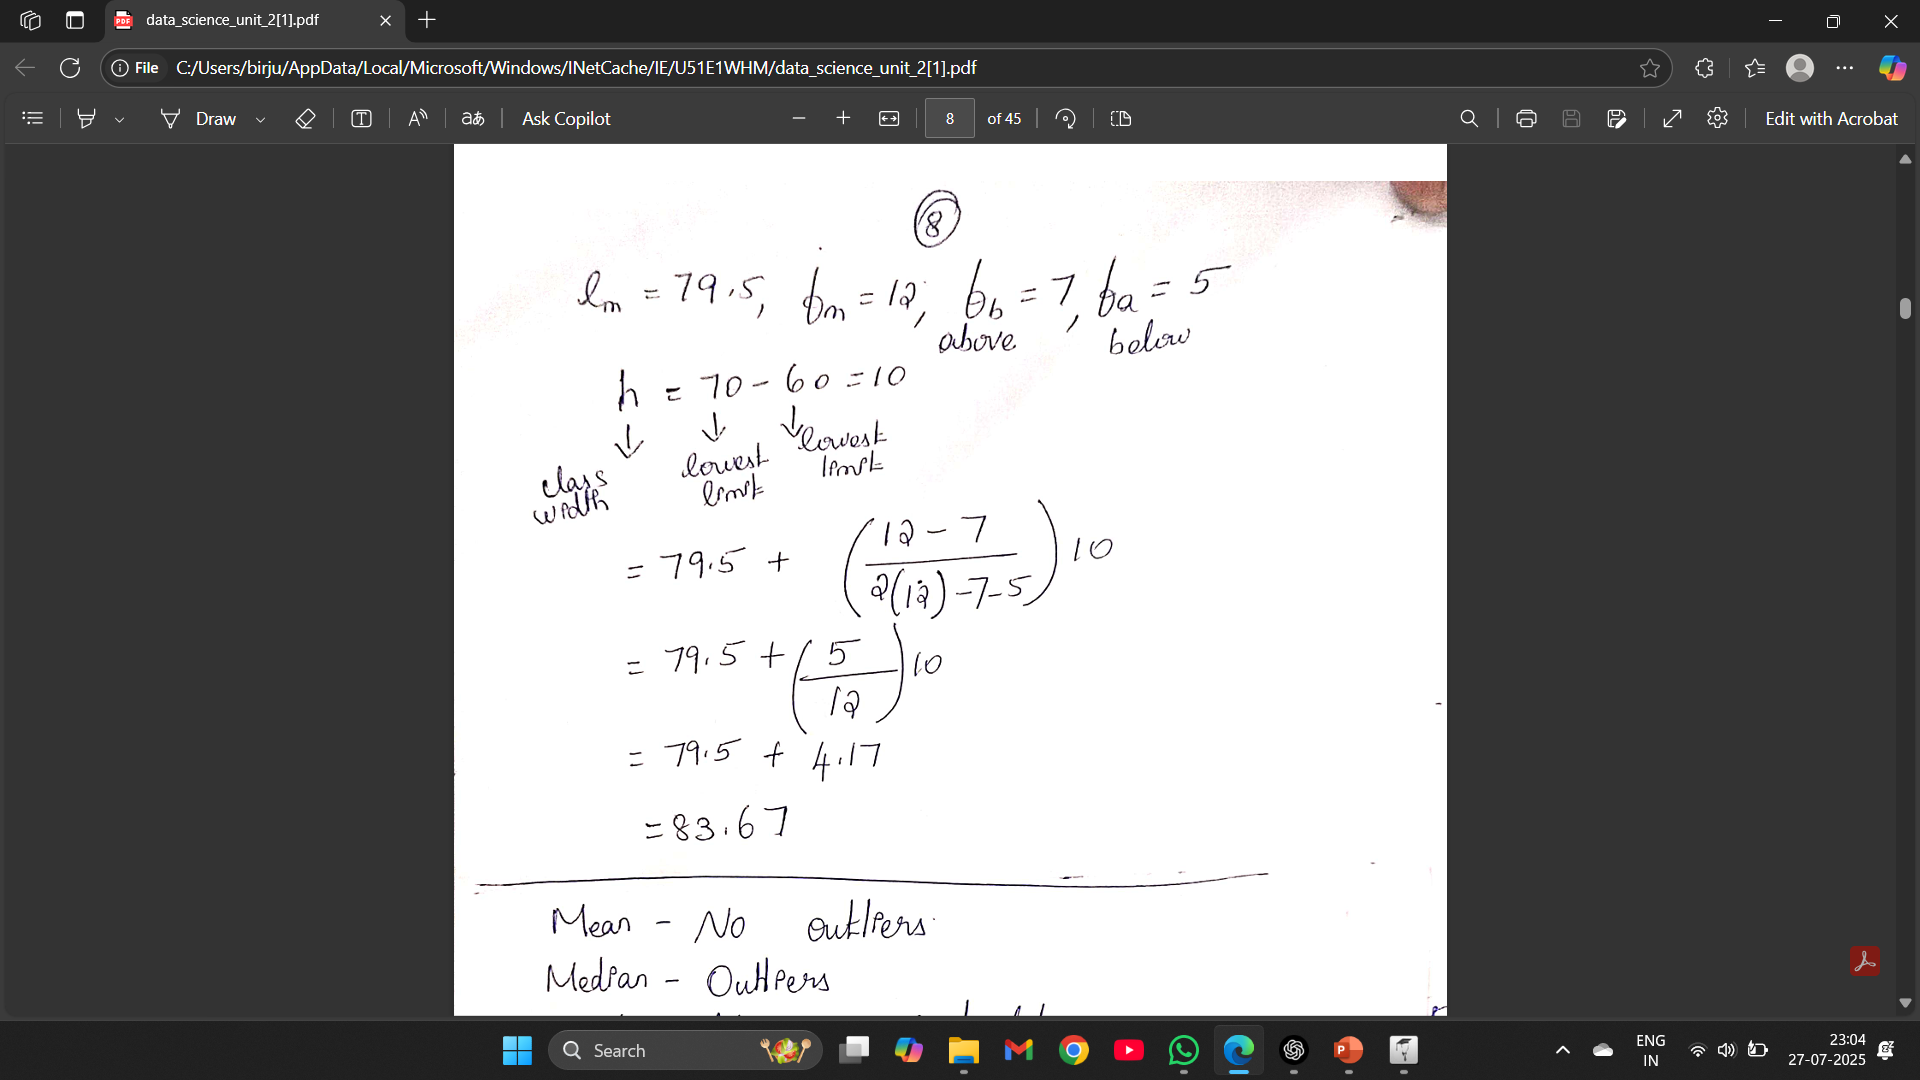 data_science_unit_2[1].pdf
File C:/Users/birju/AppData/Local/Microsoft/Windows/INetCache/IE/U51E1WHM/data_science_unit_2[1].pdf
Draw Ask Copilot 8 of 45 Edit with Acrobat
8
lm = 79.5, fm = 12, fb = 7, fa = 5
above below
h = 70 - 60 = 10
↓ ↓ ↓
class width lowest limit lowest limit
= 79.5 + (12 - 7 / 2(12) - 7 - 5) 10
= 79.5 + (5 / 12) 10
= 79.5 + 4.17
= 83.67
Mean - No outliers
Median - Outliers
Search
ENG
IN
23:04
27-07-2025